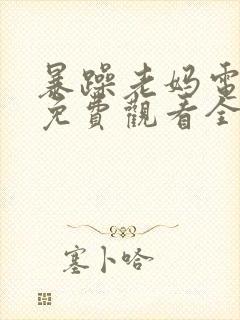 暴躁老妈電
免費觀看全
塞卜哈